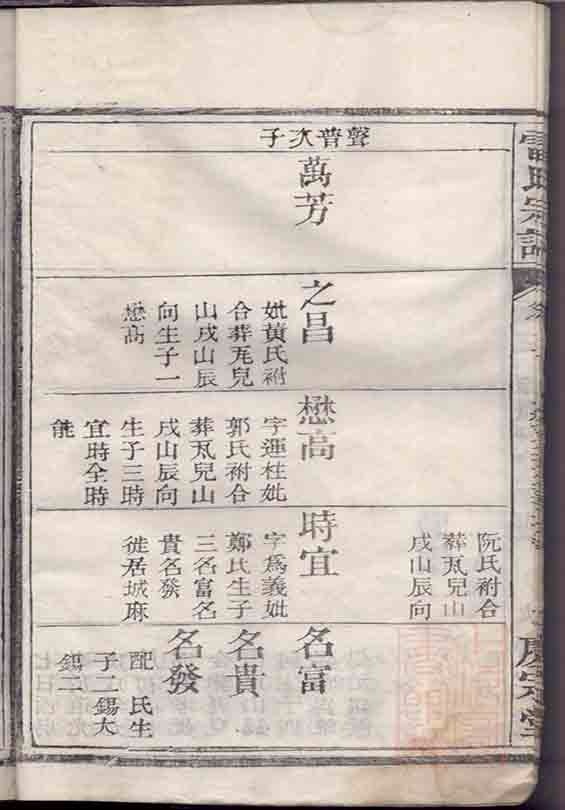 雷氏宗譜
慶宗堂
聲普次子
萬芳
之昌
妣黃氏祔
合葬瓦兒
山戌山辰
向生子一
懋高
懋高
字運柱妣
郭氏祔合
葬瓦兒山
戌山辰向
生子三時
宜時全時
能
阮氏祔合
葬瓦兒山
戌山辰向
時宜
字為義妣
鄭氏生子
三名富名
貴名發
徙居城麻
名富
名貴
名發
配 氏生
子二錫大
錫二